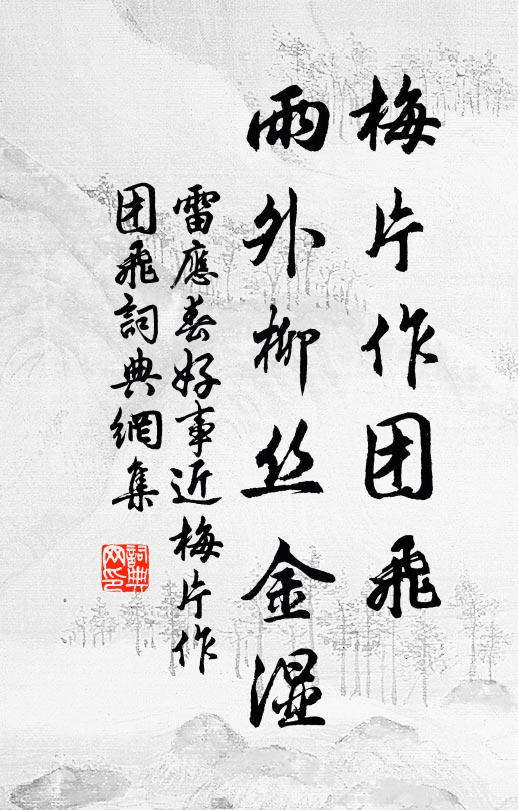 梅片作团飛
雨外柳丝金濕
雷應春好事近梅片作
团飛詞典網集
詞典网印